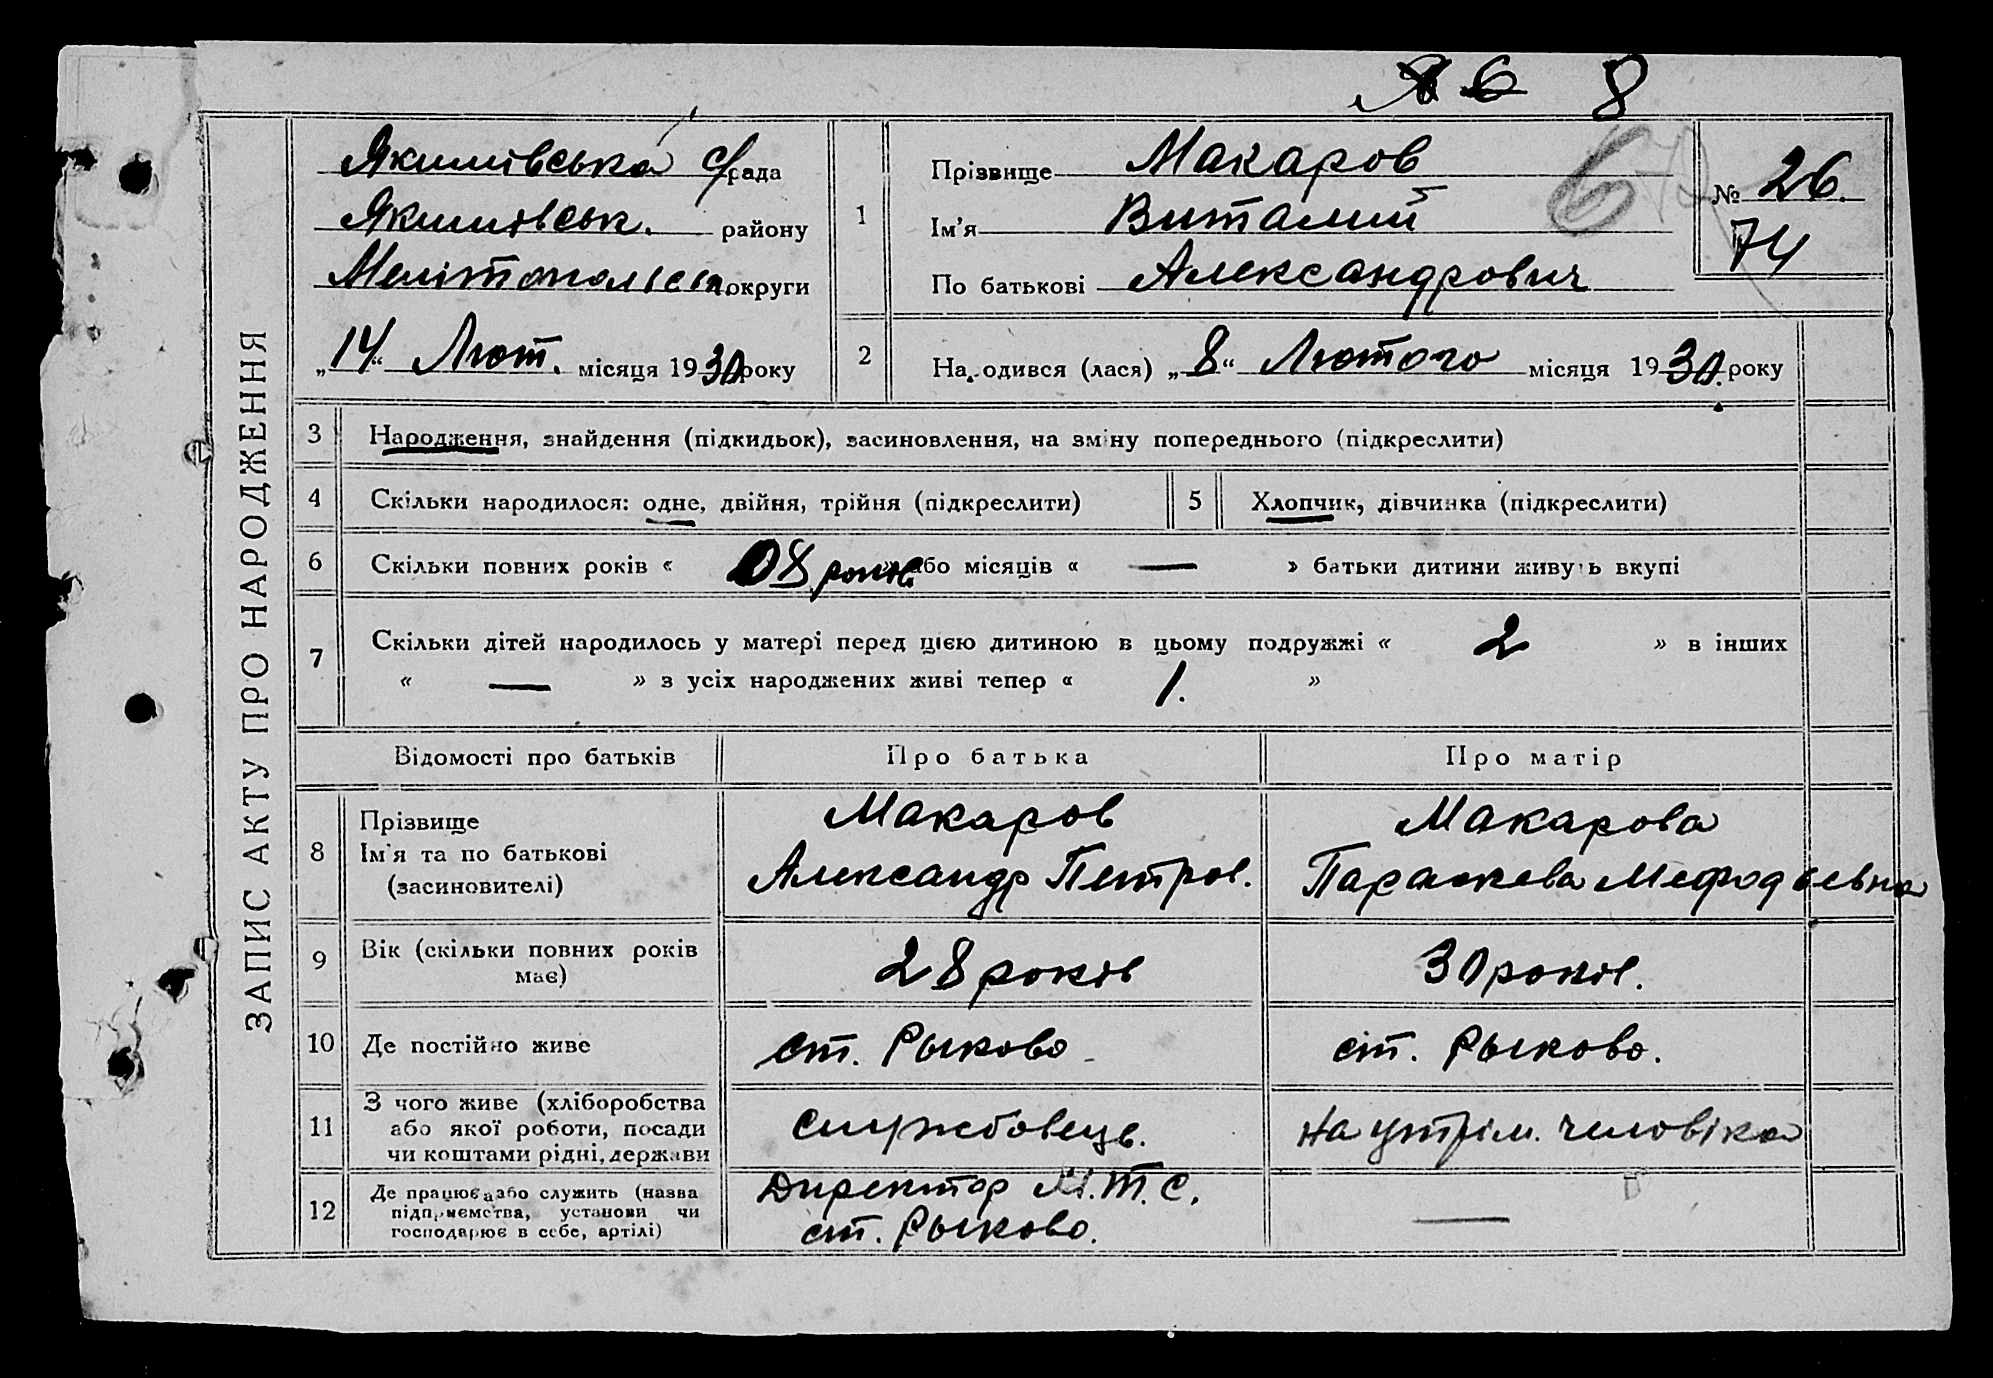 8
Якимівська с/рада
Якимовськ. району
Мелітопольськ. округи
„14“ Лют. місяця 1930 року
1
Прізвище Макаров
Ім'я Виталий
По батькові Александрович
№ 26.
74
2
Народився (лася) „8“ Лютого місяця 1930. року
ЗАПИС АКТУ ПРО НАРОДЖЕННЯ
3 Народження, знайдення (підкидьок), засиновлення, на зміну попереднього (підкреслити)
4 Скільки народилося: одне, двійня, трійня (підкреслити) 5 Хлопчик, дівчинка (підкреслити)
6 Скільки повних років « 8 років » або місяців « — » батьки дитини живуть вкупі
7 Скільки дітей народилось у матері перед цією дитиною в цьому подружжі « 2 » в інших
« — » з усіх народжених живі тепер « 1. »
Відомості про батьків Про батька Про матір
8 Прізвище
Ім'я та по батькові
(засиновителі)
Макаров
Александр Петров.
Макарова
Параскева Мефодьевна
9 Вік (скільки повних років
має)
28 років
30 років.
10 Де постійно живе ст. Рыково ст. Рыково.
11 З чого живе (хліборобства
або якої роботи, посади
чи коштами рідні, держави
службовець.
на утрім. человіка
12 Де працює або служить (назва
підприємства, установи чи
господарює в себе, артілі)
Директор М.Т.С.
ст. Рыково.
—